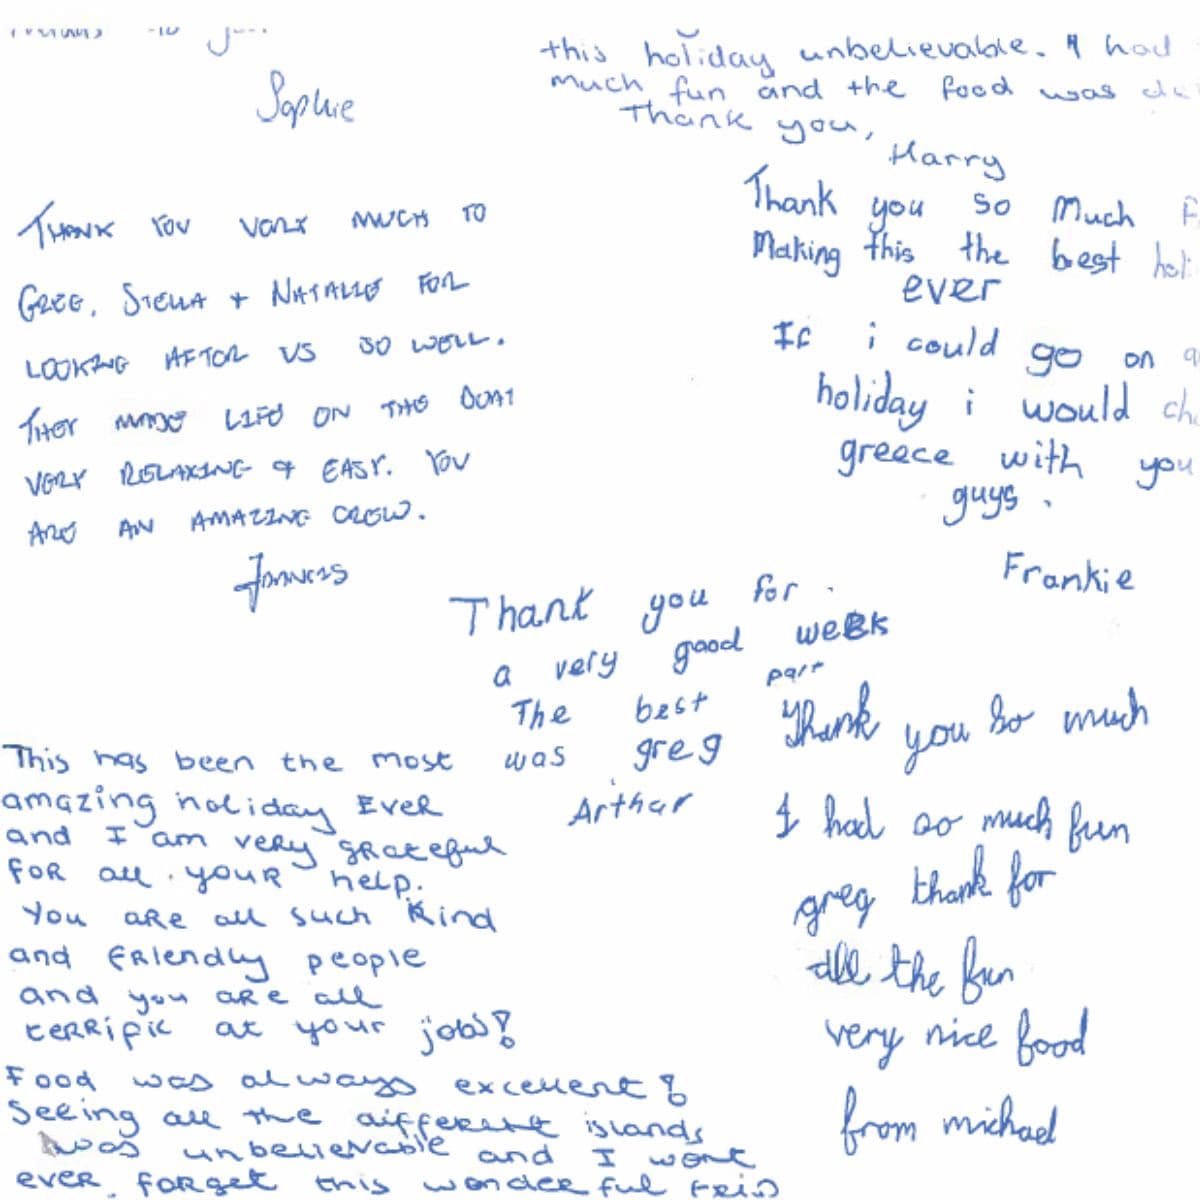 Sophie
this holiday unbelievable. I had
much fun and the food was
Thank you,
Harry
THANK YOU VERY MUCH TO
GREG, STELLA + NATALIE FOR
LOOKING AFTER US SO WELL.
THEY MADE LIFE ON THE BOAT
VERY RELAXING & EASY. YOU
ARE AN AMAZING CREW.
Francis
Thank you so Much
Making this the best
ever
If i could go on
holiday i would
greece with you
guys.
Frankie
Thank you for
a very good week
The best part
was greg
Arthur
This has been the most
amazing holiday EVER
and I am very grateful
FOR all YOUR help.
You are all such kind
and friendly people
and you are all
terrific at your jobs!
Food was always excellent!
Seeing all the different islands
was unbelievable and I wont
ever forget this wonderful
Thank you so much
I had so much fun
greg thank for
all the fun
very nice food
from michael